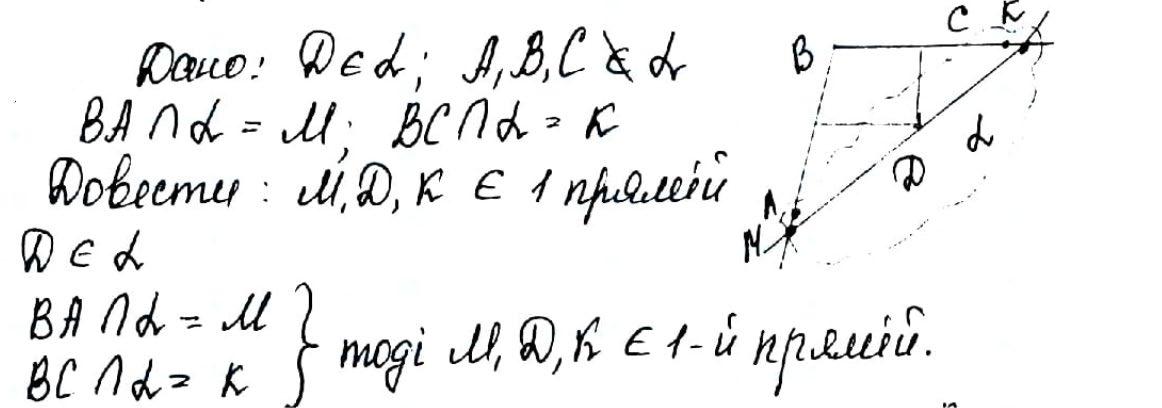 Дано: D ∈ α; A, B, C ∉ α
BA ∩ α = M; BC ∩ α = K
Довести: M, D, K ∈ 1 прямій
D ∈ α
BA ∩ α = M
BC ∩ α = K
} тоді M, D, K ∈ 1-й прямій.
B
C K
α
D
A
M